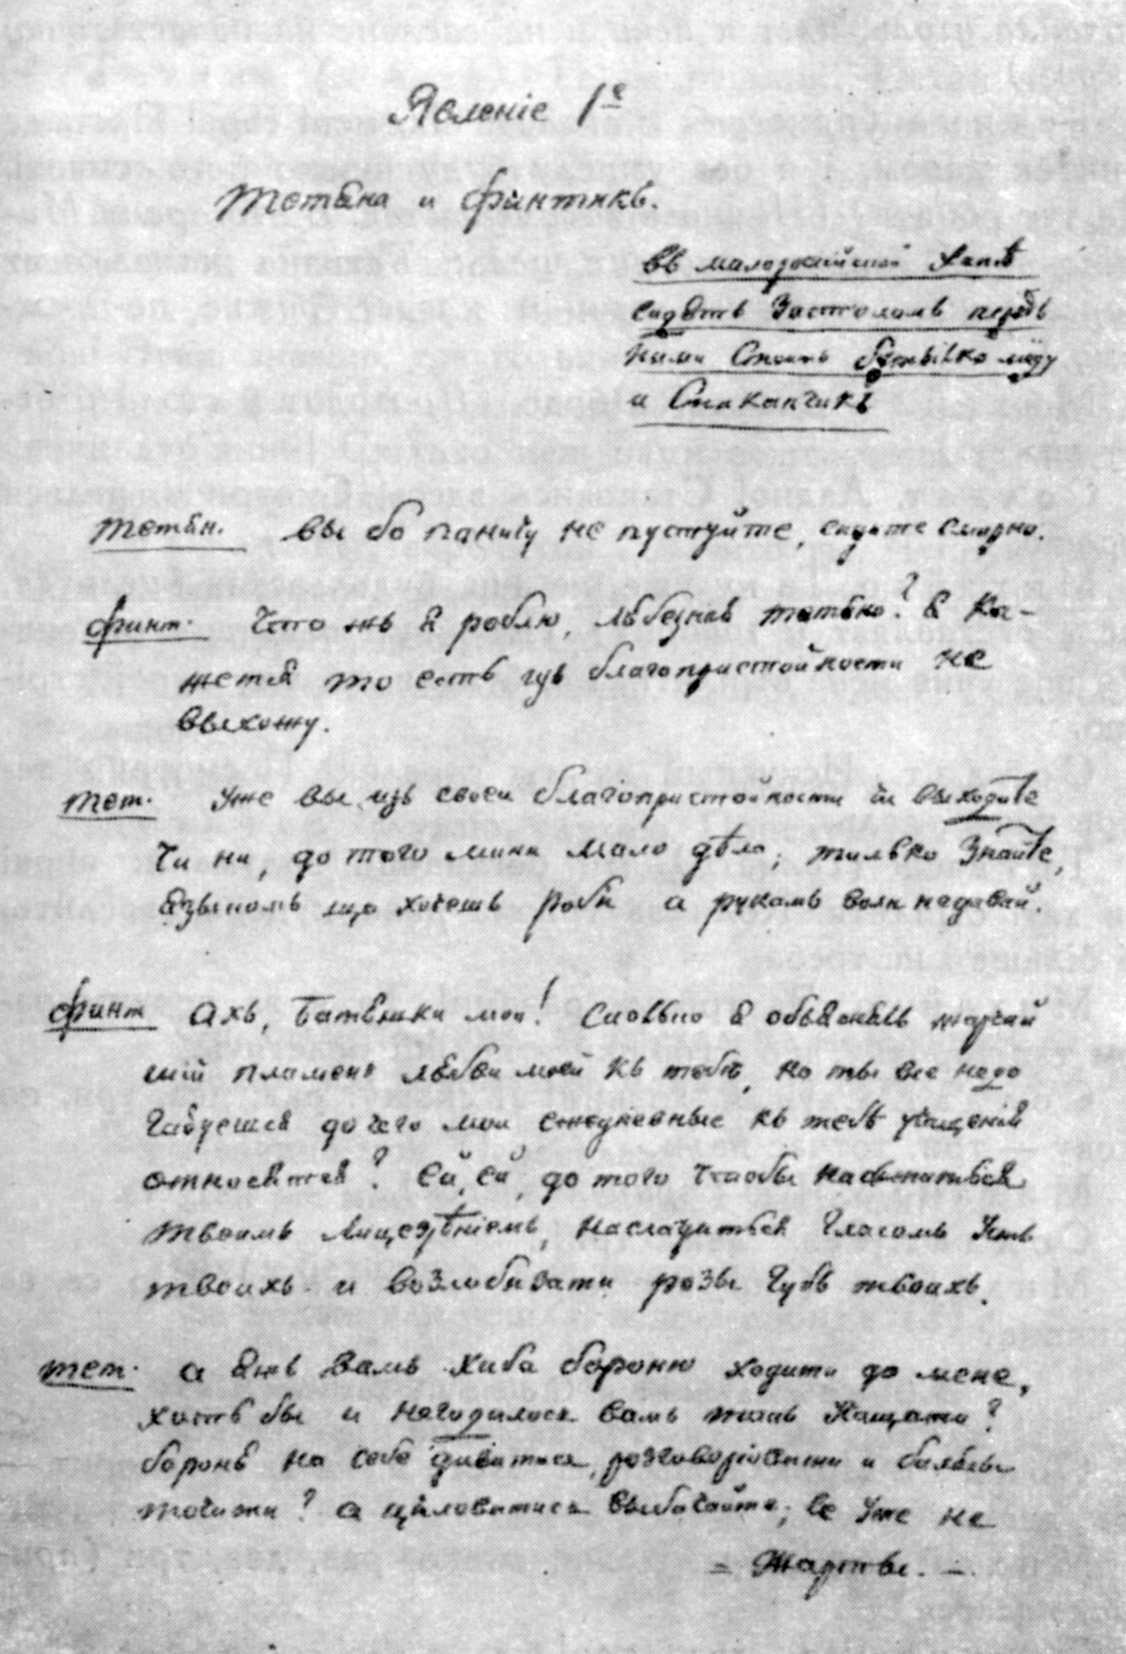 Явленіе 1е
Тетяна и Финтикъ.
въ малоросийской хатѣ
сидятъ за столомъ передъ
ними стоитъ бутылка мёду
и стаканчикъ
Тетян. вы бо паничу не пустуйте, сидите смирно.
Финт. Что жъ я роблю, любезная тетяно? я ка-
жется то есть изъ благопристойности не
выхожу.
Тет. Уже вы изъ своеи благопристойности чи выходите
чи ни, до того мини мало дѣла; тилько знайте,
языкомъ що хочешь роби а рукамъ воли недавай.
Финт Ахъ, батюшки мои! сколько я объясняль жарчай
шій пламень любви моей къ тебѣ, но ты все него
дуешся до чего мои ежедневные къ тебѣ
относятся? Ей, ей, до того чтобы насытиться
твоимъ лицезрѣніемъ, насладиться гласомъ устъ
твоихъ и возлобызати розы губъ твоихъ.
Тет. а яжъ вамъ хиба бороню ходити до мене,
хоть бы и негодилось вамъ
бороню на себе дивитися, розговорювати и балясы
точити? а циловатись выбачайте; се уже не
= Жарты. =